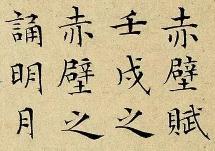 赤壁賦
壬戌之
赤壁之
誦明月